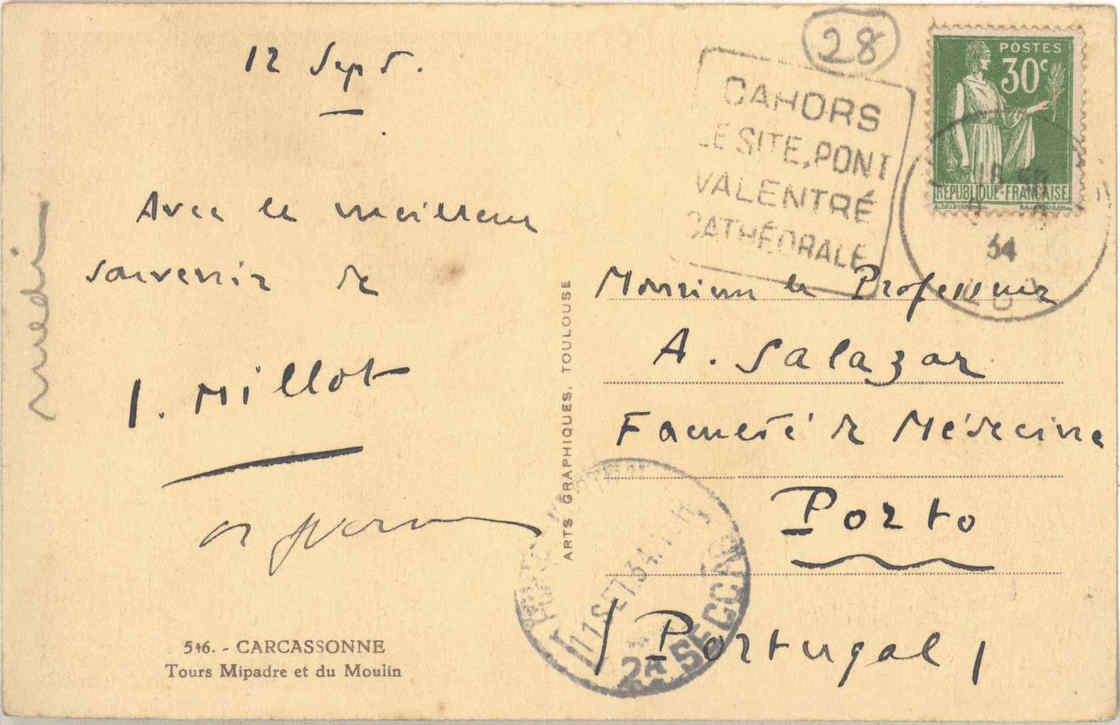 12 Sept.
28
CAHORS
LE SITE, PONT
VALENTRÉ
CATHÉDRALE
POSTES
30c
REPUBLIQUE FRANÇAISE
34
Avec le meilleur
souvenir de
J. Millot
Monsieur le Professeur
A. Salazar
Faculté de Médecine
Porto
(Portugal)
ARTS GRAPHIQUES, TOULOUSE
SET 34
2A SECCÃO
546. - CARCASSONNE
Tours Mipadre et du Moulin